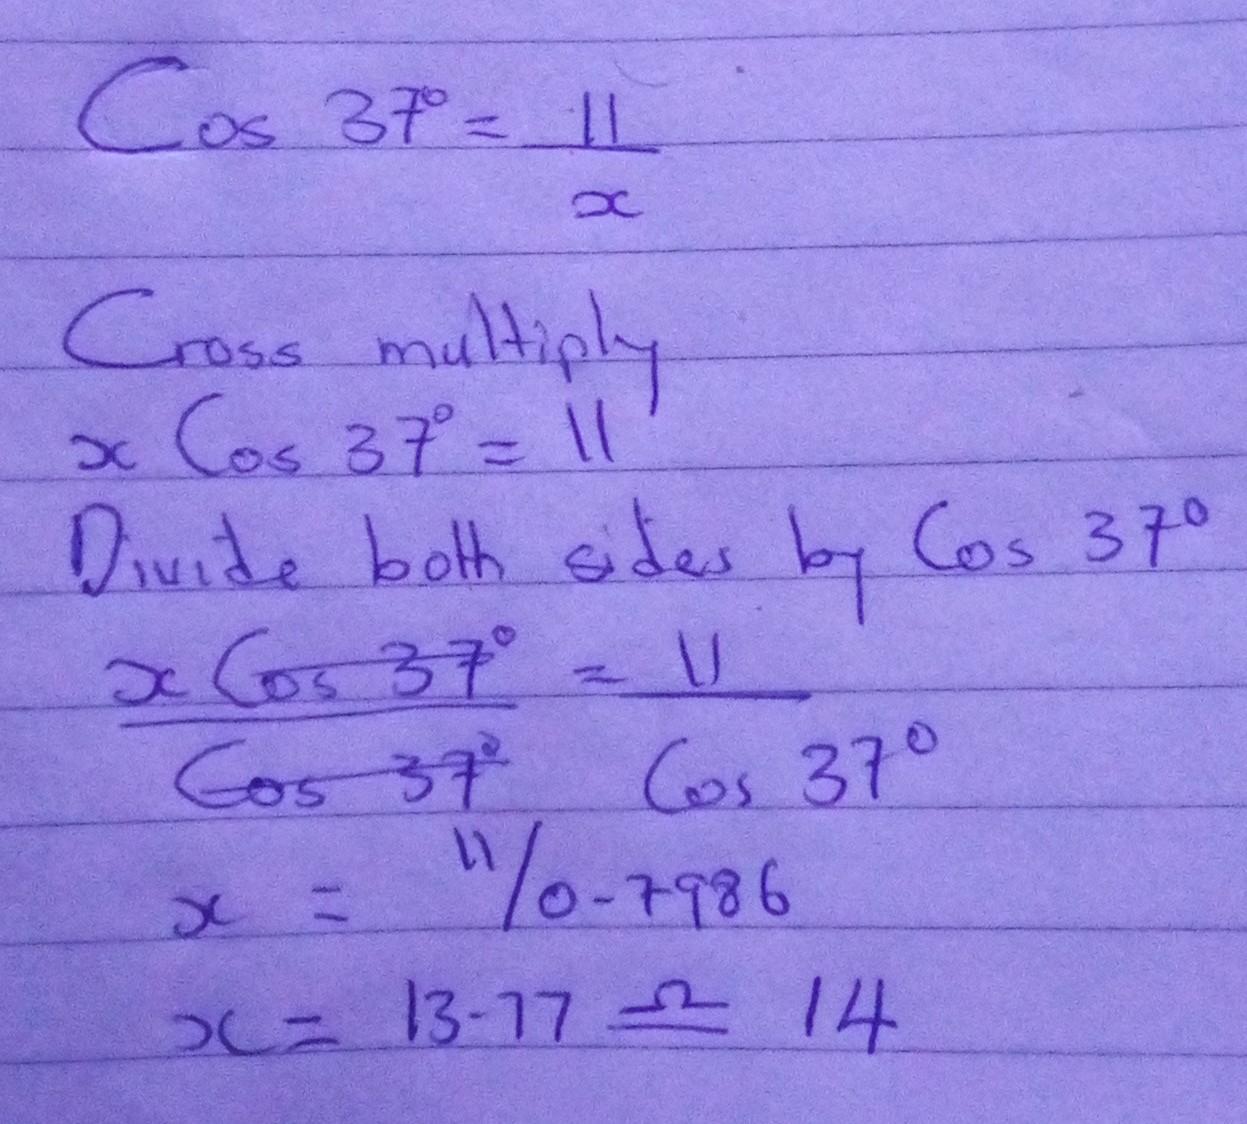 Cos 37° = 11
x
Cross multiply
x Cos 37° = 11
Divide both sides by Cos 37°
x Cos 37° = 11
Cos 37° Cos 37°
x = 11/0.7986
x = 13.77 ≏ 14